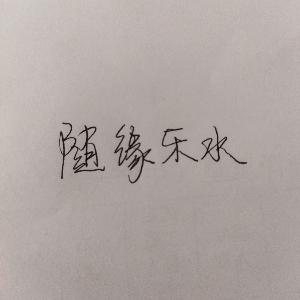 随缘乐水